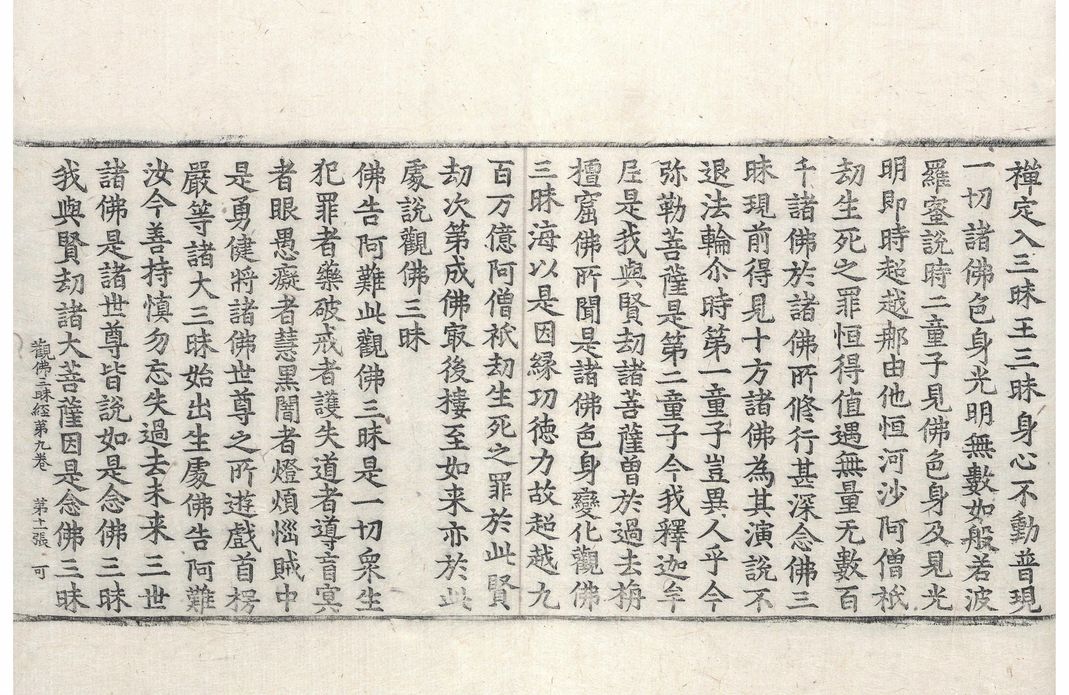 禪定入三昧王三昧身心不動普現
一切諸佛色身光明無數如般若波
羅蜜說時二童子見佛色身及見光
明即時超越那由他恒河沙阿僧祇
劫生死之罪恒得值遇無量无數百
千諸佛於諸佛所修行甚深念佛三
昧現前得見十方諸佛為其演說不
退法輪尒時第一童子豈異人乎今
弥勒菩薩是第二童子今我釋迦牟
尼是我與賢劫諸菩薩曽於過去栴
檀窟佛所聞是諸佛色身變化觀佛
三昧海以是因緣功徳力故超越九
百万億阿僧祇劫生死之罪於此賢
劫次第成佛㝡後樓至如来亦於此
處說觀佛三昧
佛告阿難此觀佛三昧是一切衆生
犯罪者藥破戒者護失道者導盲㝠
者眼愚癡者慧黒闇者燈煩惱賊中
是勇健將諸佛世尊之所遊戲首楞
嚴等諸大三昧始出生處佛告阿難
汝今善持慎勿忘失過去未来三世
諸佛是諸世尊皆說如是念佛三昧
我與賢劫諸大菩薩因是念佛三昧
觀佛三昧経第九卷　第十一張　可